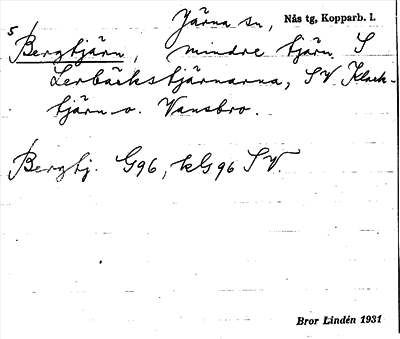 Järna sn, Nås tg, Kopparb. l.
5
Bergtjärn, mindre tjärn S
Lerbäckstjärnarna, SV Klack-
tjärn o. Vansbro.
Bergtj. G96, kG96 SV.
Bror Lindén 1931